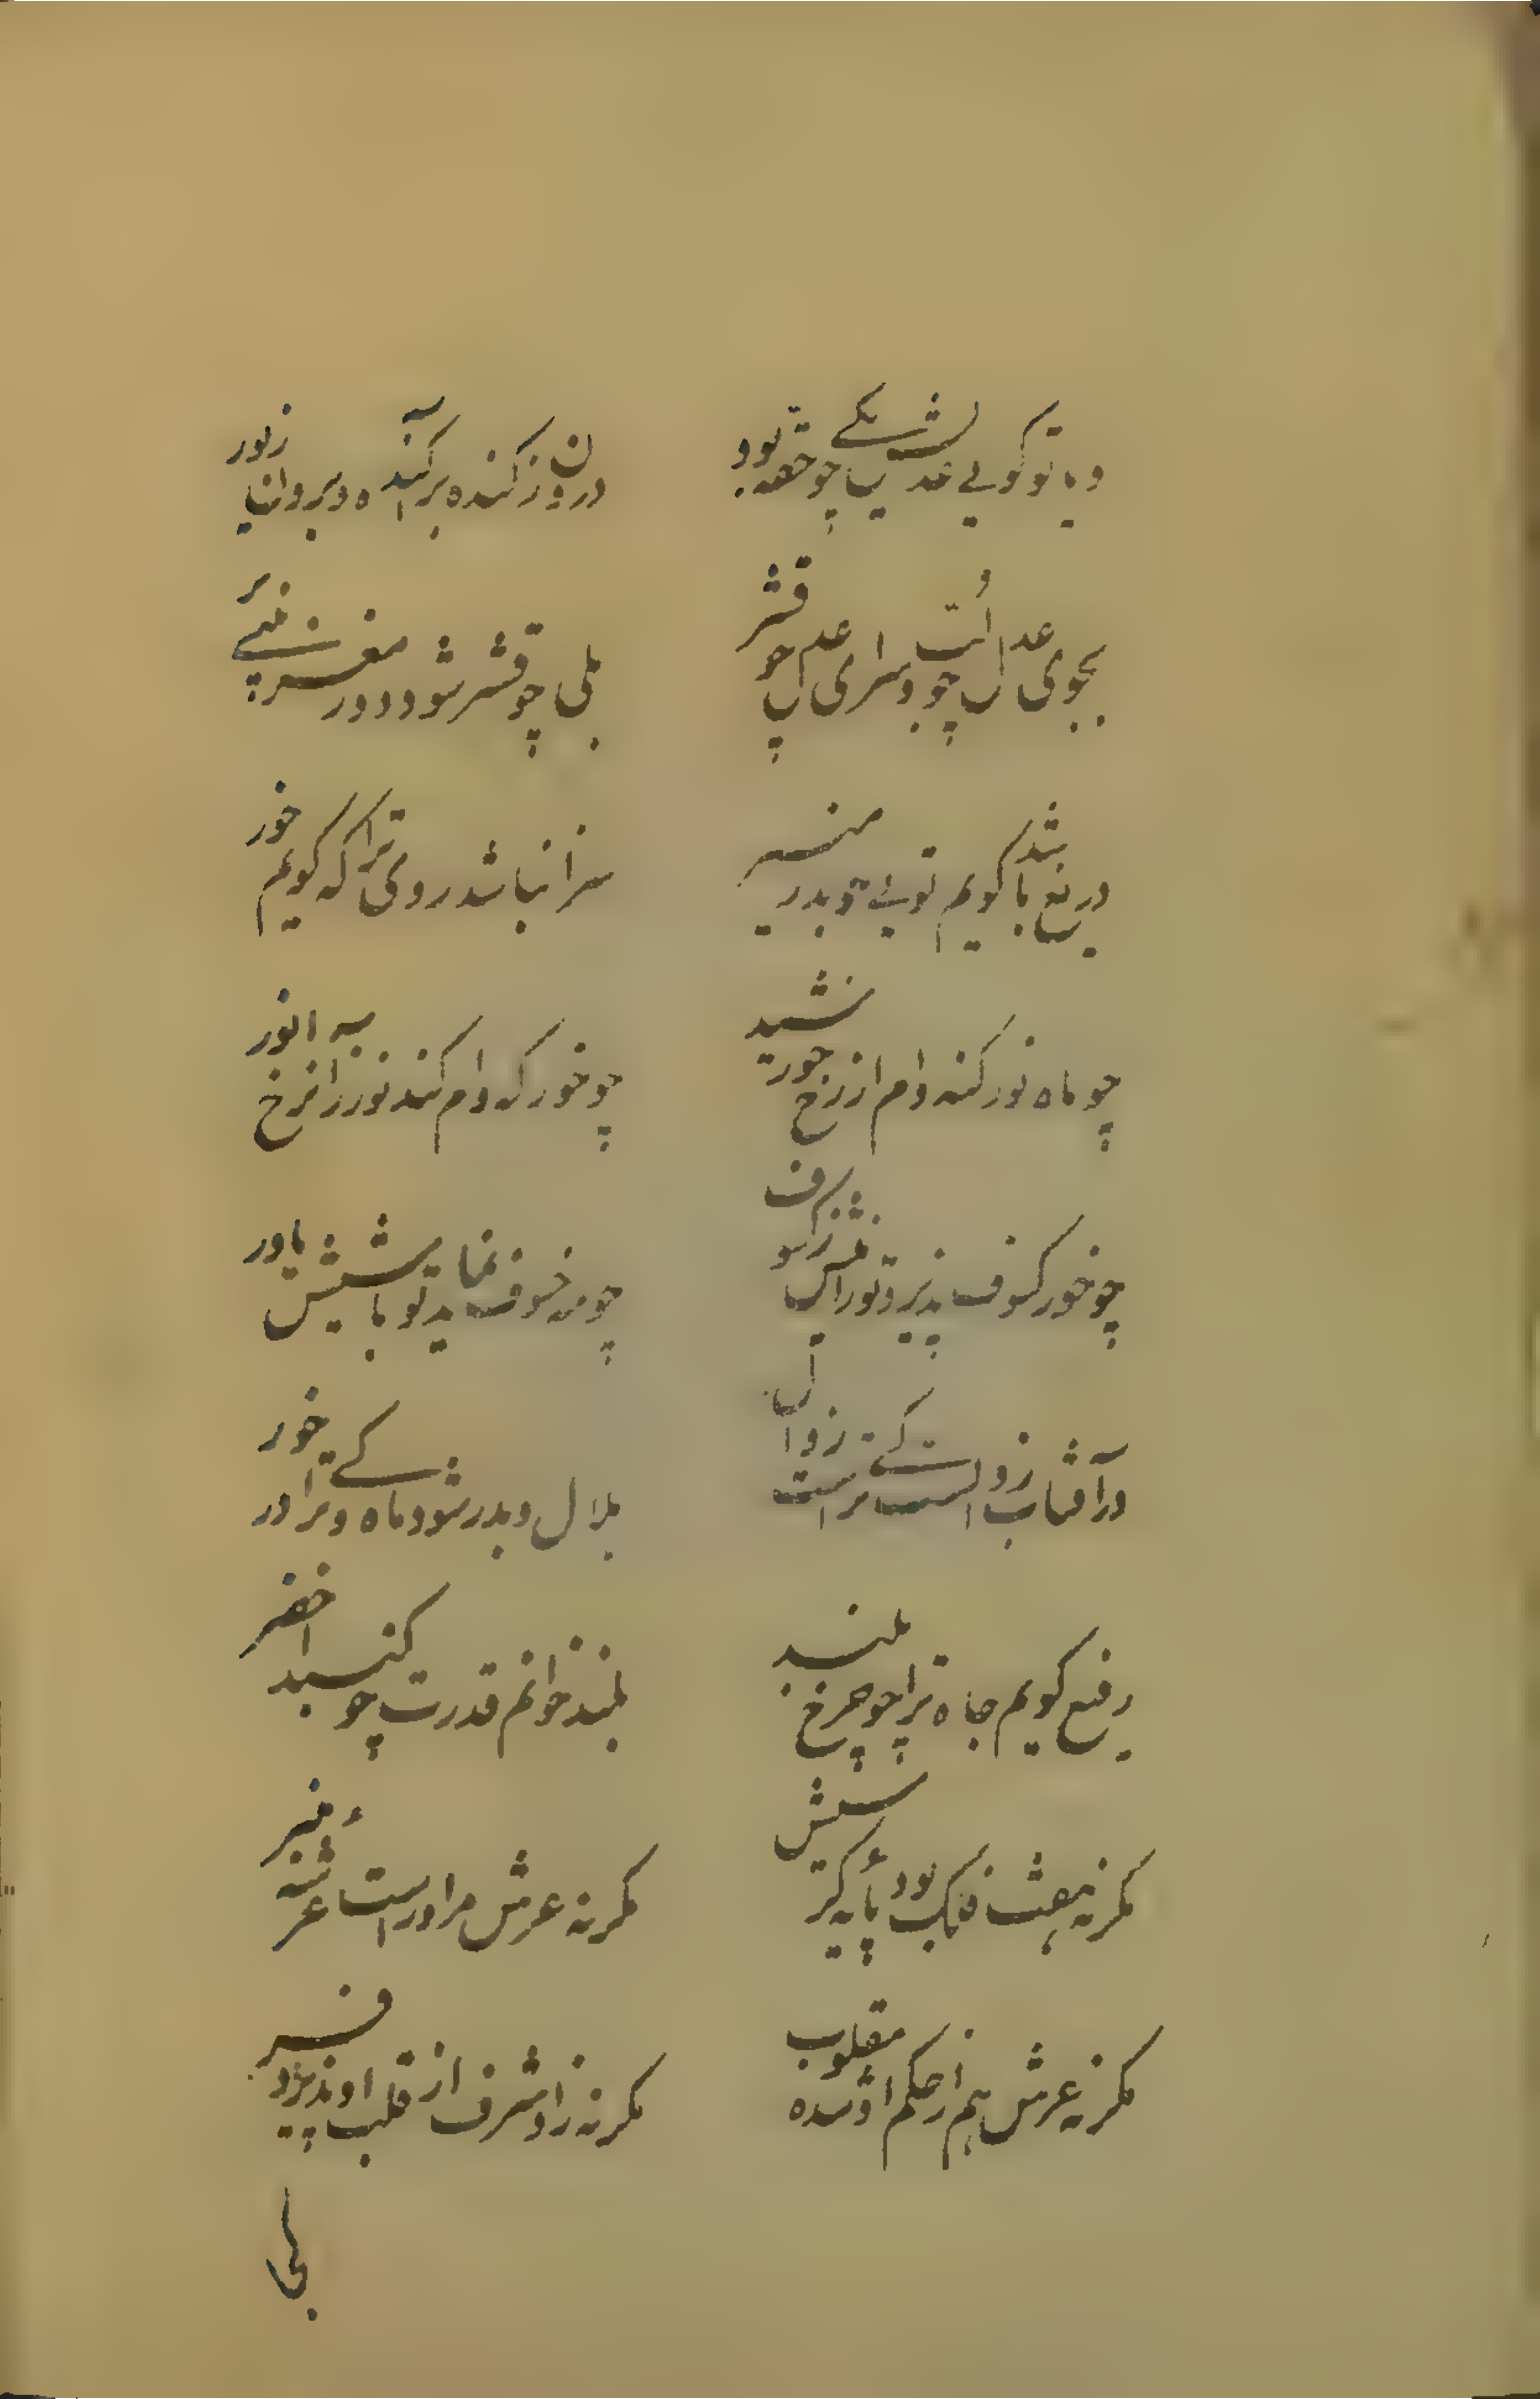 و یا تو گویی غدیرش یکی چو حقه بود
درون ز کنده برآکنده و برون ز نور
بجوی عدل است چو و سرای عدل چو قشر
بلی چو قشر شود دور مغز
دریغ باشد گویم توئی چو بدر منیر
سزا نباشد روی ترا که گویم خور
چو ماه نور کند وام از رخ خورشید
چو خور که وام کند نور زان رخ انور
چو خور کسوف پذیرد تو را
چو مه خسوف نماید تو باشیش یاور
در آفتاب زوال است کی تراست زوال
هلال و بدر شود ماه و مر ترا در خور
رفیع گویم جاه ترا چو چرخ بلند
بلند خوانم قدرت چو گنبد اخضر
مگر نه هفت فلک بود پایه کرسیش
مگر نه عرش مر او راست عرشه منبر
مگر نه عرش هم از حکم او شده مقلوب
مگر نه زو شرف از قلب او پذیرد فر
بلی